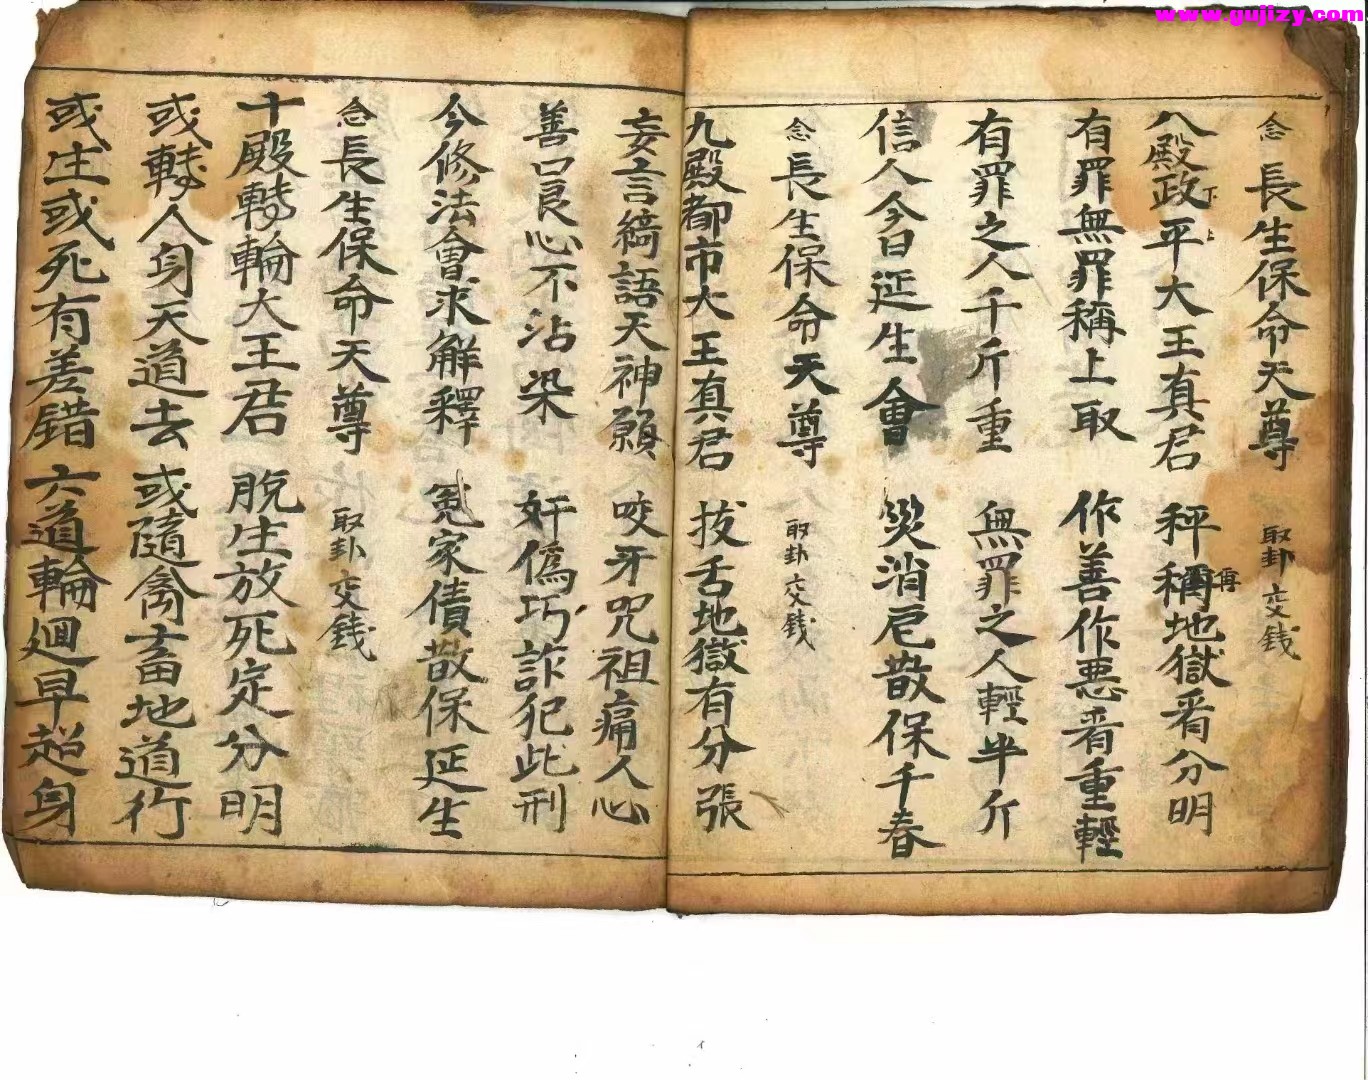 www.gujizy.com
念 長生保命天尊 取卦交錢
八殿政平大王真君 秤稱地獄看分明
下 上 再
有罪無罪稱上取 作善作悪看重輕
有罪之人千斤重 無罪之人輕半斤
信人今日延生會 災消厄散保千春
念 長生保命天尊 取卦交錢
九殿都市大王真君 拔舌地獄有分張
妄言綺語天神願 咬牙咒祖痛人心
善口良心不沾染 奸偽巧詐犯此刑
今修法會求解釋 冤家債散保延生
念 長生保命天尊 取卦交錢
十殿轉輪大王君 脫生放死定分明
或轉人身天道去 或隨禽畜地道行
或生或死有差錯 六道輪迴早超身